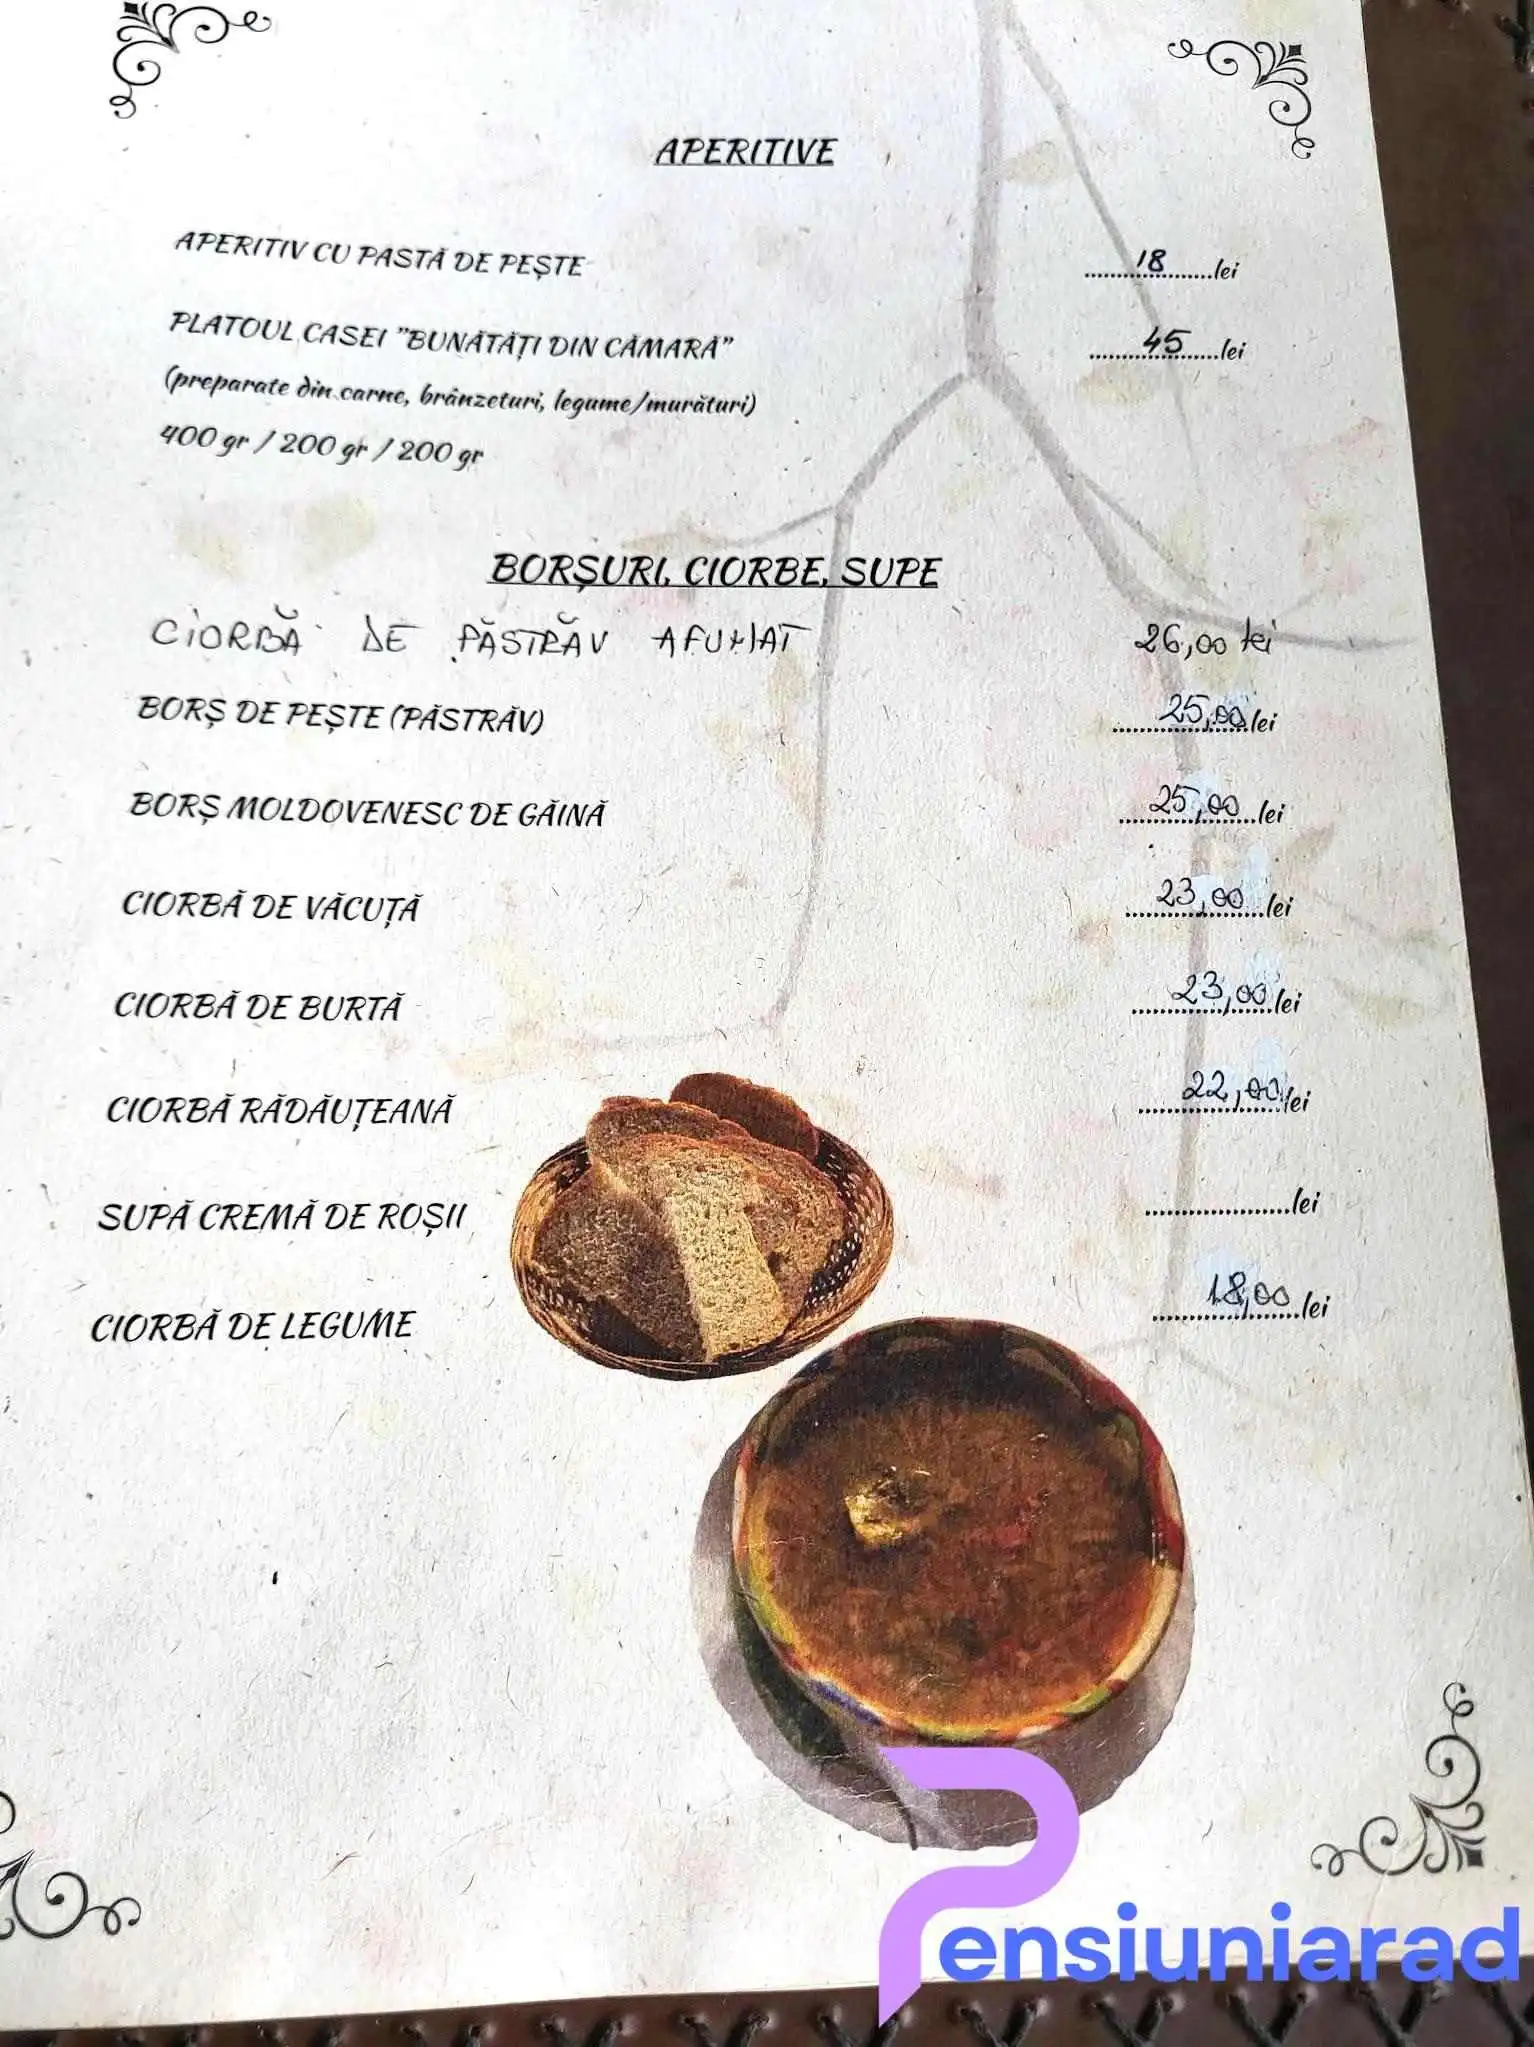 APERITIVE
APERITIV CU PASTĂ DE PEȘTE ..........18..........lei
PLATOUL CASEI "BUNĂTĂȚI DIN CĂMARĂ" ..........45..........lei
(preparate din carne, brânzeturi, legume/murături)
400 gr / 200 gr / 200 gr
BORȘURI, CIORBE, SUPE
CIORBĂ DE PĂSTRĂV AFUMAT 26,00 lei
BORȘ DE PEȘTE (PĂSTRĂV) ..........25,00..........lei
BORȘ MOLDOVENESC DE GĂINĂ ..........25,00..........lei
CIORBĂ DE VĂCUȚĂ ..........23,00..........lei
CIORBĂ DE BURTĂ ..........23,00..........lei
CIORBĂ RĂDĂUȚEANĂ ..........22,00..........lei
SUPĂ CREMĂ DE ROȘII ....................lei
CIORBĂ DE LEGUME ..........18,00..........lei
Pensiuniarad